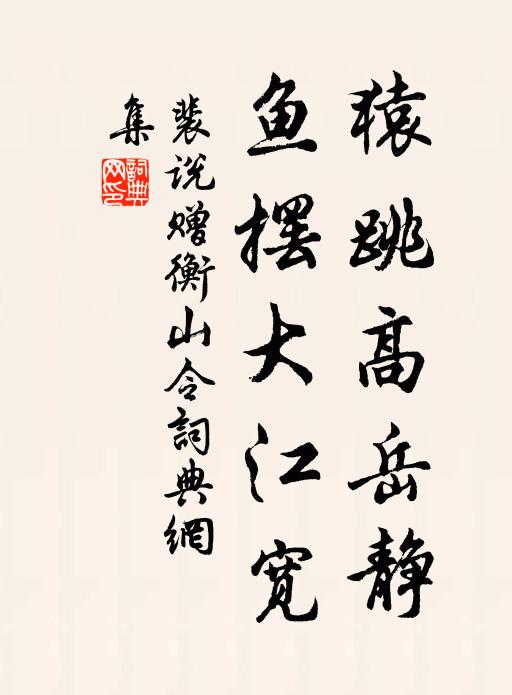 猿跳高岳静
鱼摆大江宽
裴说赠衡山令詞典網
集
詞典網印